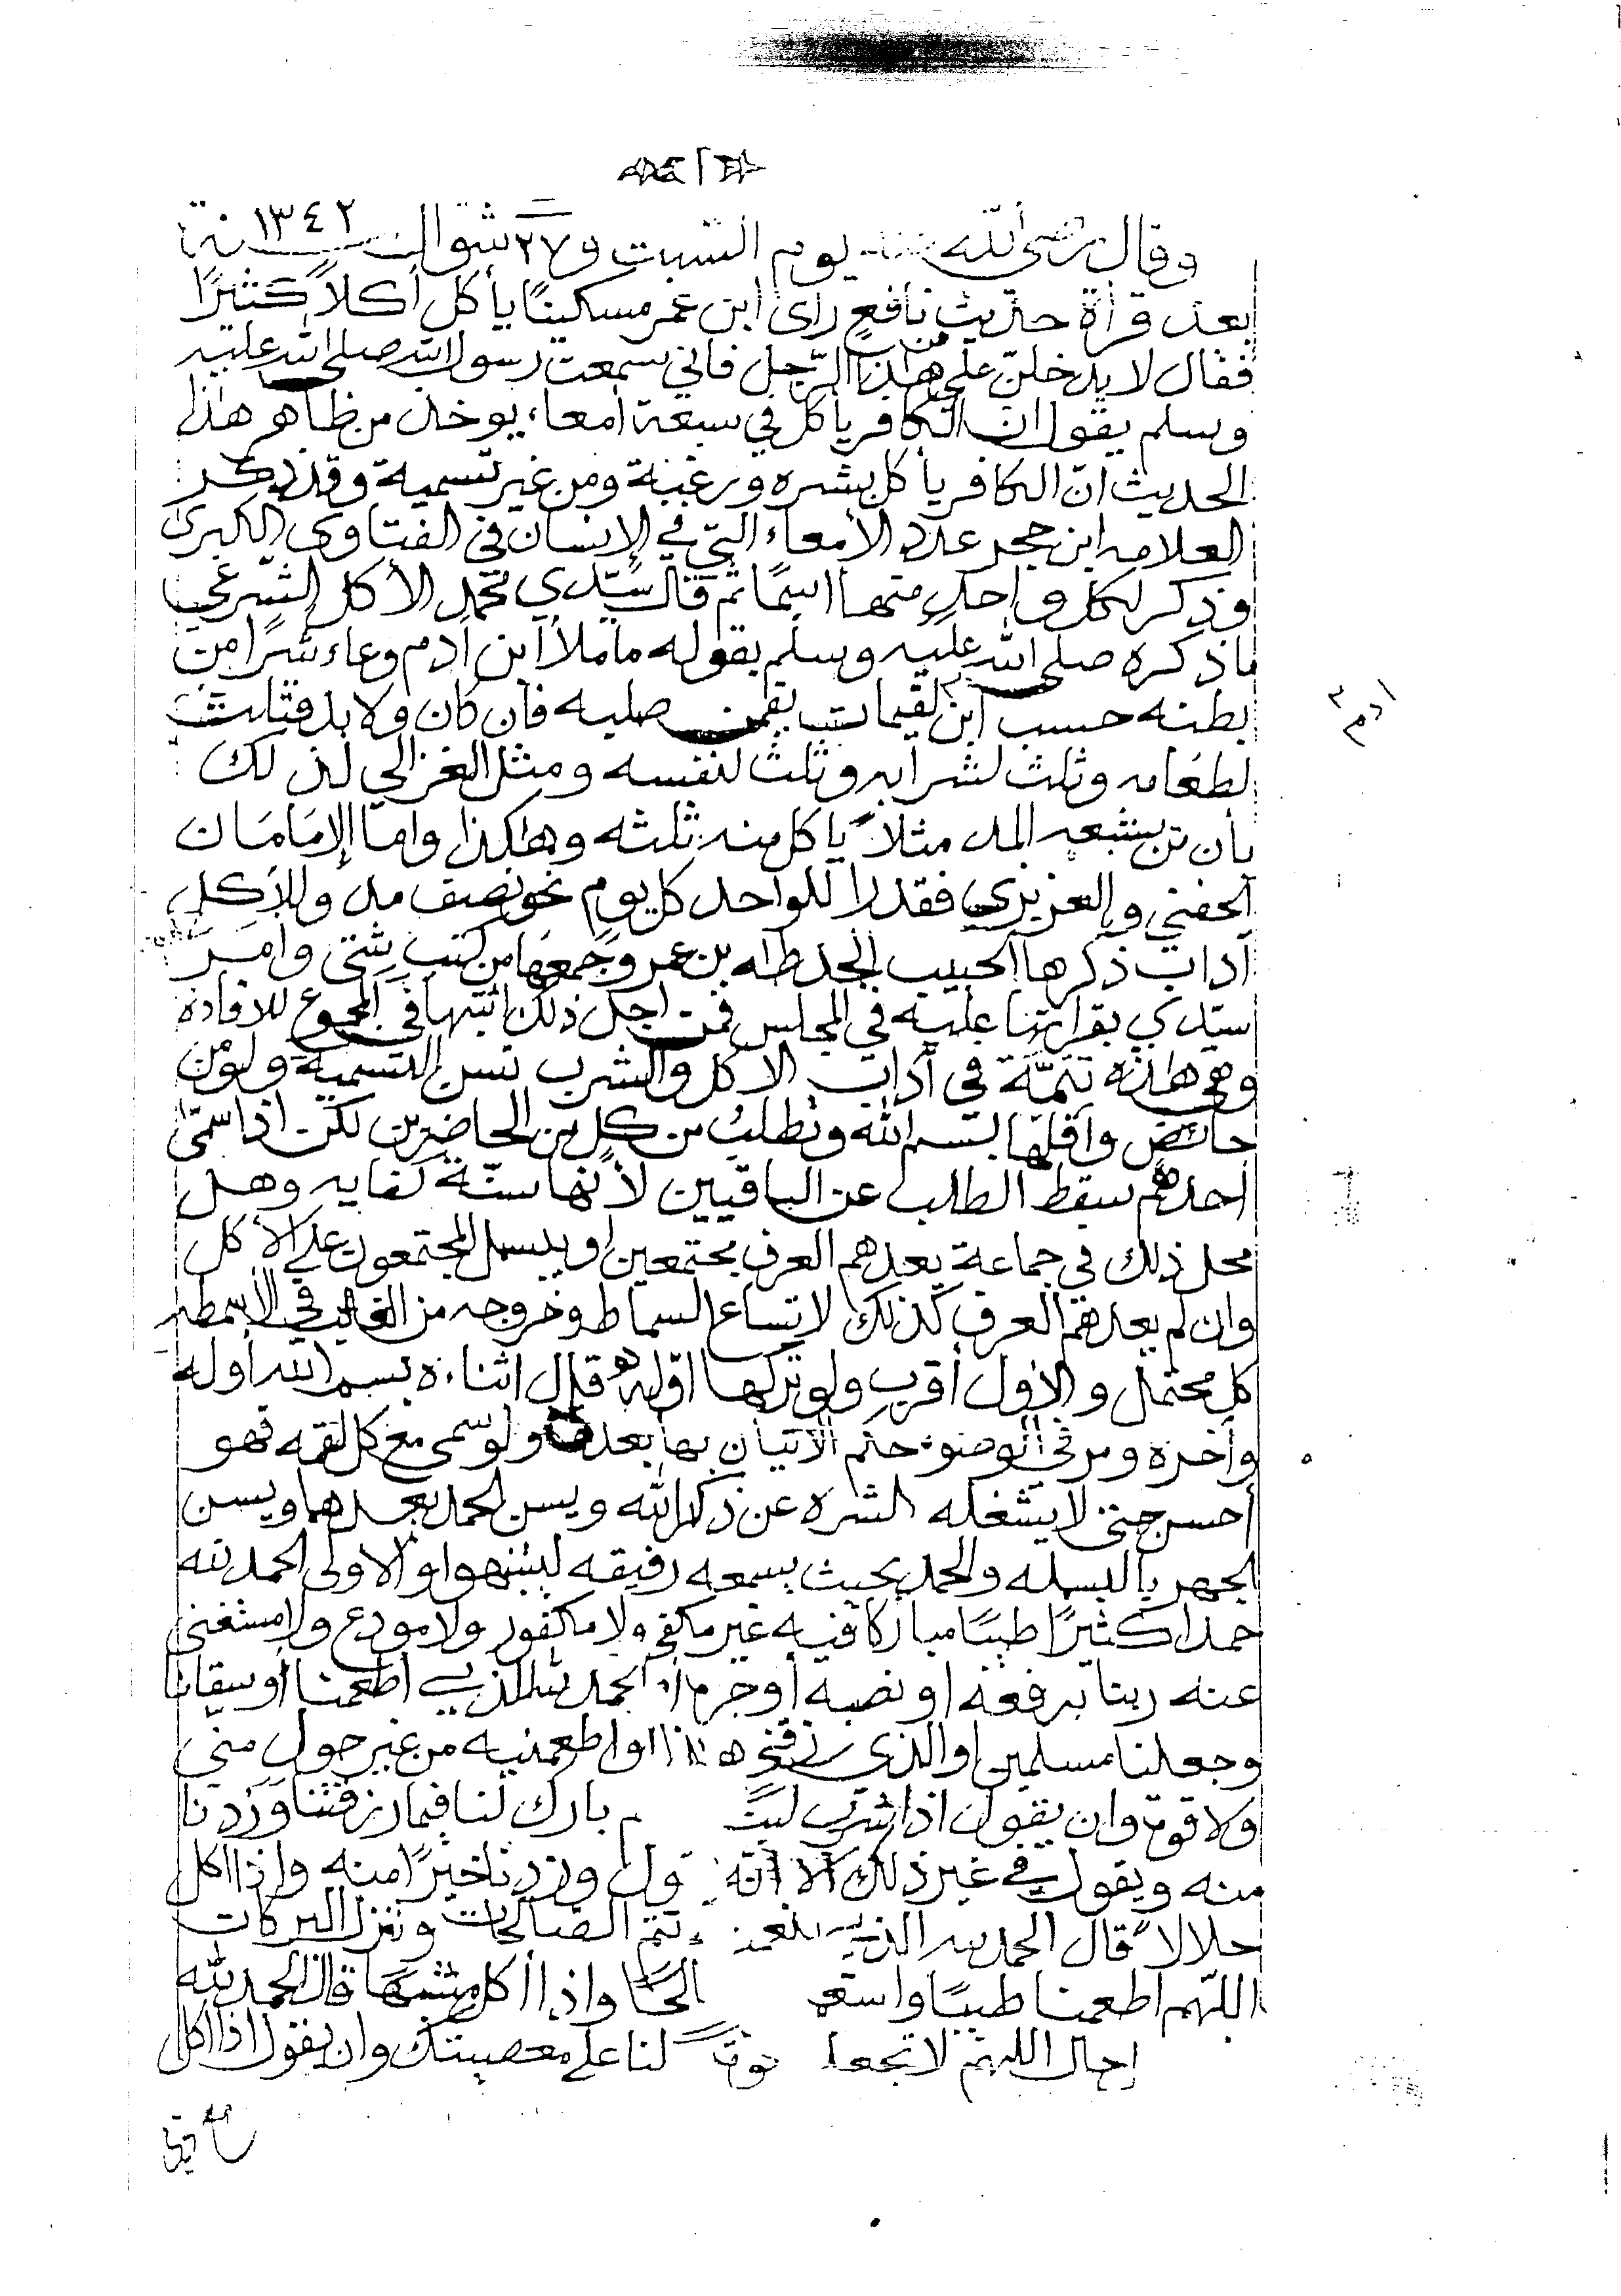 وقال رضي الله عنه يوم السبت و٢٧ شوال سنة ١٣٤٢
بعد قرأة حديث نافع رأى ابن عمر مسكينًا يأكل أكلاً كثيرًا
فقال لا يدخلنّ علي هذا الرّجل فاني سمعت رسول الله صلى الله عليه
وسلم يقول ان الكافر يأكل في سبعة أمعاء، يوخذ من ظاهر هذا
الحديث انّ الكافر يأكل بشره ورغبة ومن غير تسمية وقد ذكر
العلامه ابن حجر عدد الأمعاء التي في الإنسان في الفتاوى الكبرى
وذكر لكل واحدٍ منها اسمًا ثم قال سيّدي محمد الأكل الشّرعي
ما ذكره صلى الله عليه وسلم بقوله ما ملأ ابن آدم وعاء شرًا من
بطنه حسب ابن لقيمات يقمن صلبه فان كان ولا بد فثلث
ادم
لطعامه وثلث لشرابه وثلث لنفسه ومثل الغزالي لذلك
بأن من يشبعه المد مثلاً يأكل منه ثلثه وهاكذا واما الإمامان
الحفني والعزيزي فقدرا للواحد كل يوم نحو نصف مد وللأكل
آداب ذكرها الحبيب الجد طه بن عمر وجمعها من كتب شتى وامر
سيّدي بقراءتها عليه في المجلس فمن اجل ذلك اثبتها في المجموع للافادة
وهي هاذه تتمّة في آداب الاكل والشرب تسن التسمية ولو من
حائض وأقلها بسم الله وتطلب من كل من الحاضرين لكن اذا سمّى
أحدهم سقط الطلب عن الباقيين لأنها سنّة كفايه وهل
محل ذلك في جماعة يعدهم العرف مجتمعين او يبسمل المجتمعون على الأكل
وان لم يعدهم العرف كذلك لاتساع السماط وخروجه من الغالب في الأسمطه
كل محتمل والاول أقرب ولو تركها اوّله قال اثناءه بسم الله أوله
وآخره ومر في الوضوء حكم الاتيان بها بعده ولو سمى مع كل لقمه فهو
أحسن حتى لا يشغله الشره عن ذكر الله ويسن الحمد بعدهما ويسن
الجهر بالبسمله والحمد بحيث يسمعه رفيقه لينتبهوا والاولى الحمد لله
حمدا كثيرًا طيبًا مباركا فيه غير مكفي ولا مكفور ولا مودع ولا مستغنى
عنه ربنا برفعه او نصبه أو جره أو الحمد لله الذي أطعمنا أو سقانا
وجعلنا مسلمين او الذي رزقني هذا او اطعمنيه من غير حول مني
ولا قوة وان يقول اذا شرب لبنًا بارك لنا فيما رزقتنا وزدنا
منه ويقول في غير ذلك الا انّه وارزقنا خيرًا منه واذا اكل
حلالاً قال الحمد لله الذي بنعمته تتم الصالحات وتنزل البركات
اللهم اطعمنا طيبًا واستعملنا صالحًا واذا أكل مشتبهًا قال الحمد لله
على كل حال اللهم لا تجعله قوة لنا على معصيتك وان يقول اذا اكل